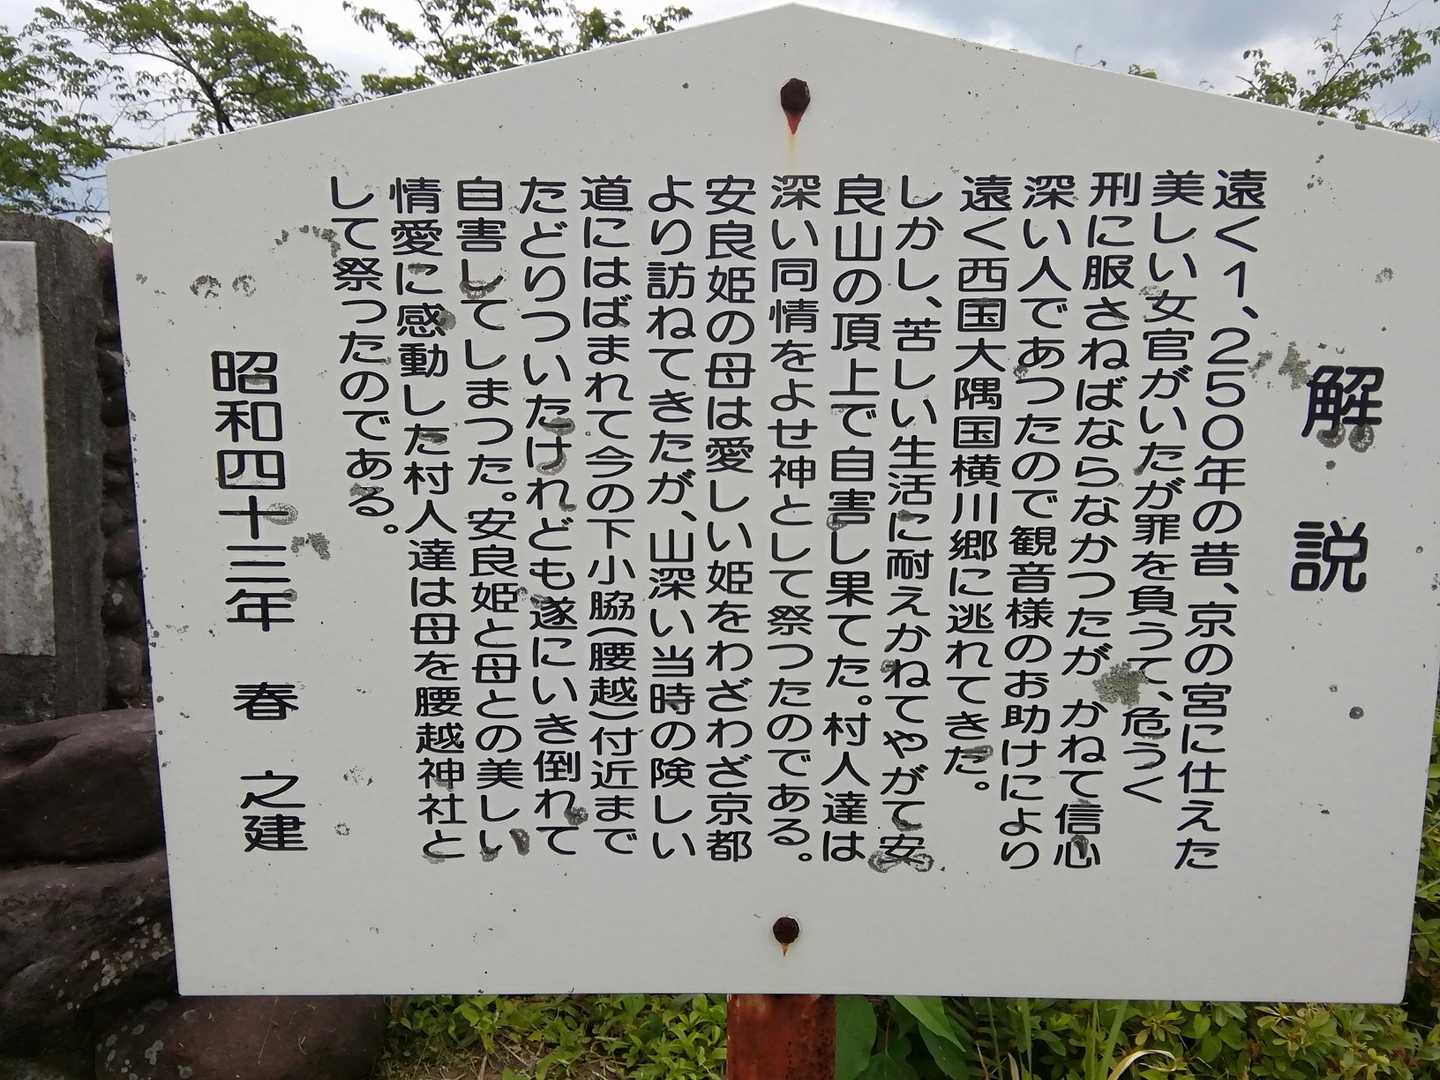 解説
遠く１、２５０年の昔、京の宮に仕えた
美しい女官がいたが罪を負うて、危うく
刑に服さねばならなかつたが かねて信心
深い人であつたので観音様のお助けにより
遠く西国大隅国横川郷に逃れてきた。
しかし、苦しい生活に耐えかねてやがて安
良山の頂上で自害し果てた。村人達は
深い同情をよせ神として祭つたのである。
安良姫の母は愛しい姫をわざわざ京都
より訪ねてきたが、山深い当時の険しい
道にはばまれて今の下小脇(腰越)付近まで
たどりついたけれども遂にいき倒れて
自害してしまつた。安良姫と母との美しい
情愛に感動した村人達は母を腰越神社と
して祭つたのである。
昭和四十三年 春 之建